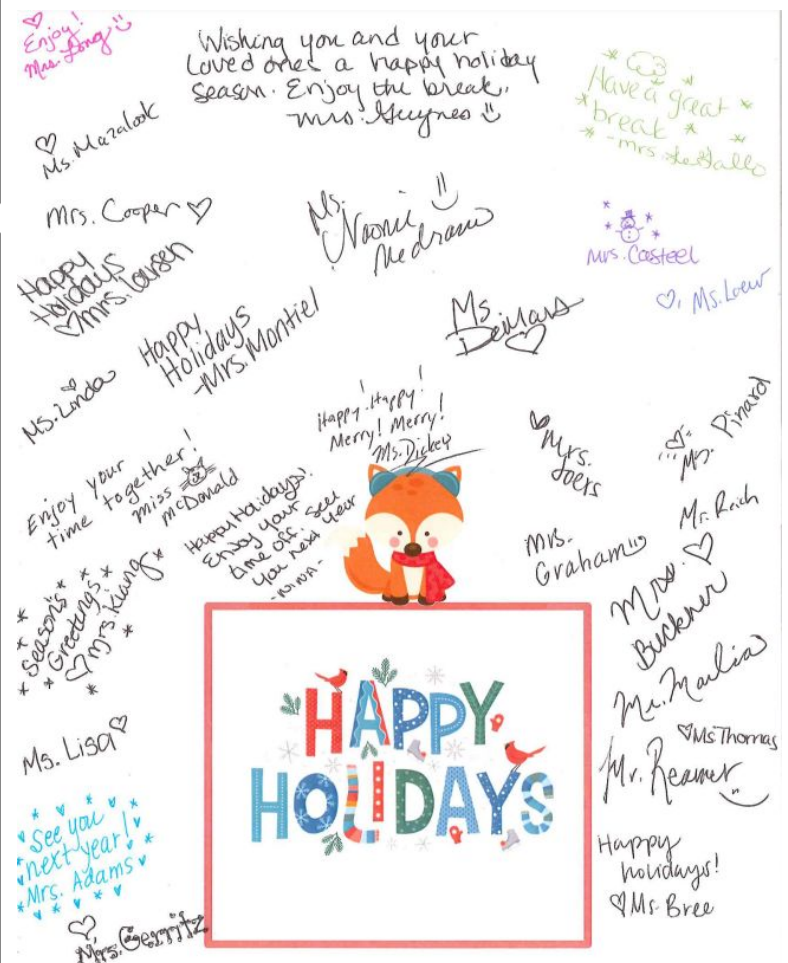 Enjoy!
Mrs. Long
Wishing you and your
Loved ones a happy holiday
season. Enjoy the break.
Mrs.
Have a great
break
-mrs.
Ms. Mazalook
Mrs. Cooper
Ms.
Naomi
Medrano
Mrs. Casteel
Ms. Loew
Happy
Holidays
Mrs. Lousen
Happy
Holidays
-Mrs. Montiel
Ms.
DeMars
Ms. Linda
Happy! Happy!
Merry! Merry!
Ms. Dickey
Mrs.
Joers
Ms. Pinard
Enjoy your
time together!
miss
McDonald
Happy Holidays!
Enjoy your
time off. See
you next year
-NINA-
Mr. Reich
Mrs.
Graham
Season's
Greetings
Mrs. Kiang
Mrs.
Buckner
Mr.
Ms Thomas
Mr. Reamer
Ms. Lisa
HAPPY
HOLIDAYS
See you
next year!
Mrs. Adams
Happy
holidays!
Ms. Bree
Mrs. Gerritz